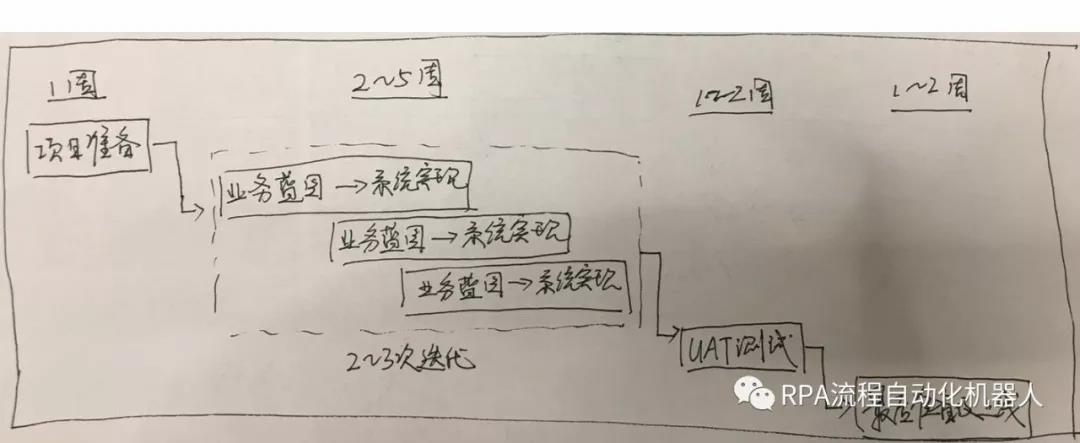 1周
2~5周
1~2周
1~2周
项目准备
业务蓝图→系统实现
业务蓝图→系统实现
业务蓝图→系统实现
2~3次迭代
UAT测试
RPA流程自动化机器人